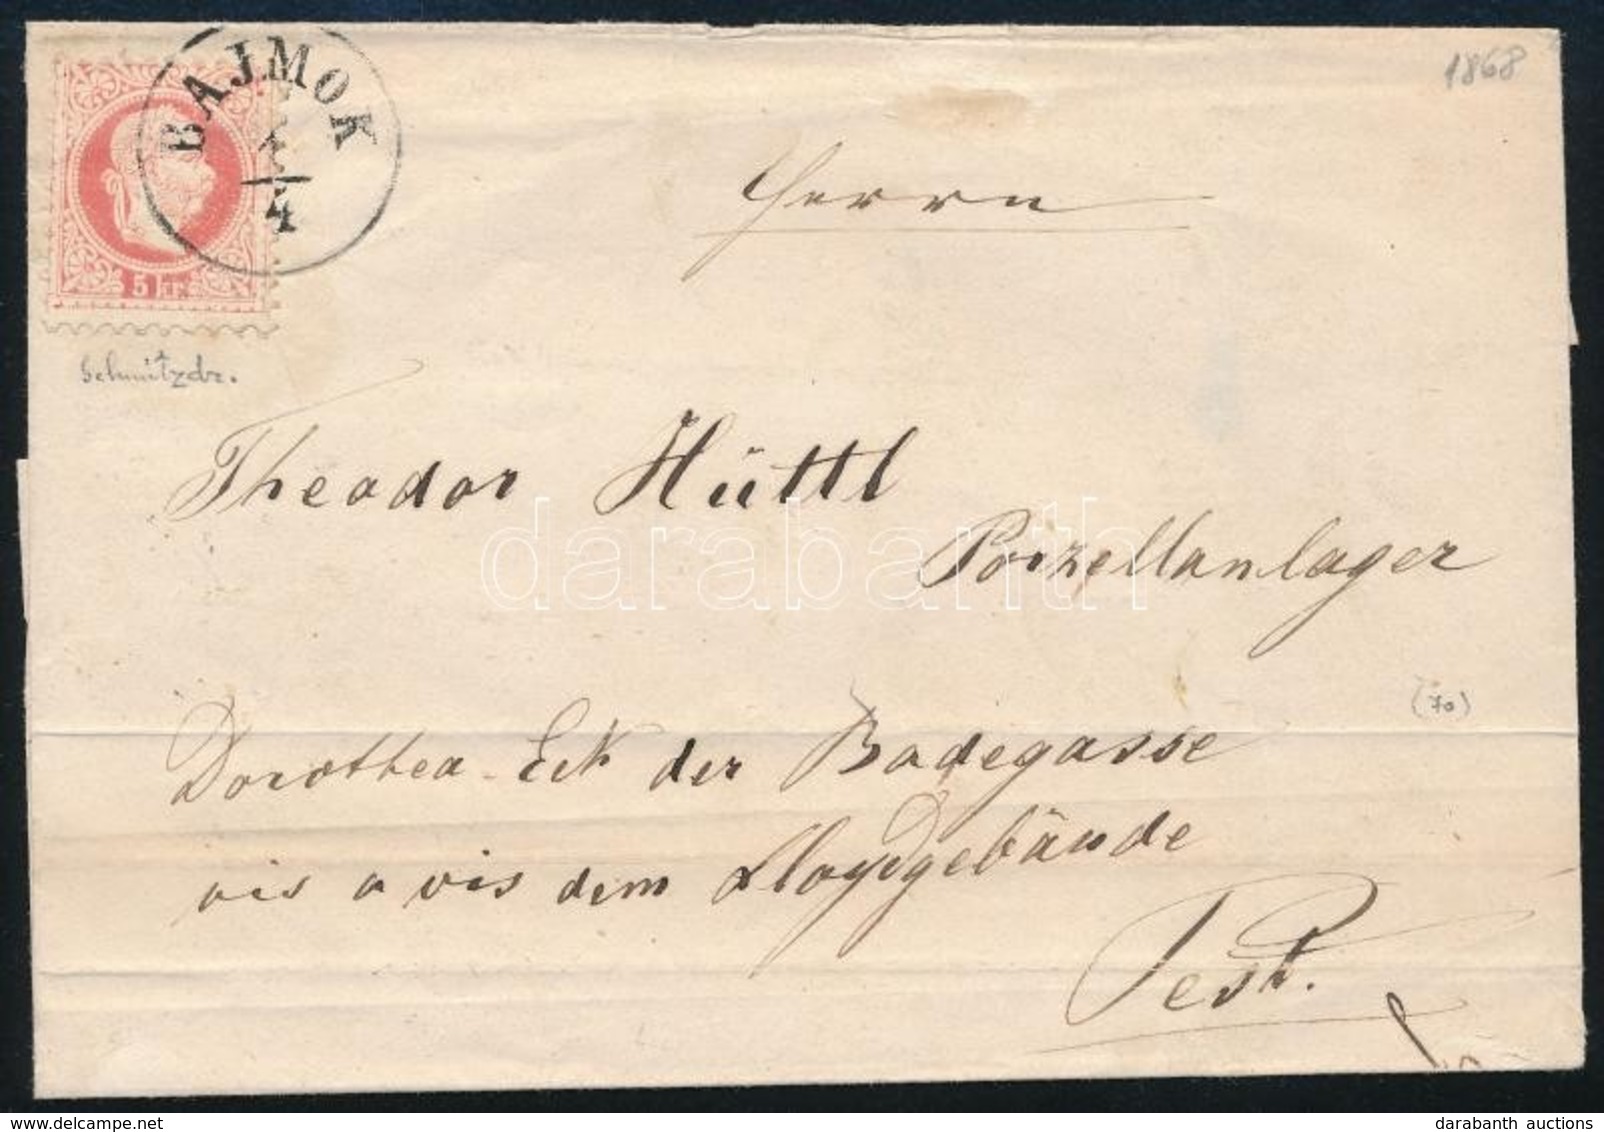 1868
BAJMOK
1
4
5 kr.
Schmitzdr.
Herrn
Theodor Hüttl
Porzellanlager
darabanth
(70)
Dorothea Eck der Badegasse
vis a vis dem Lloydgebäude
Pest.
darabanth auctions